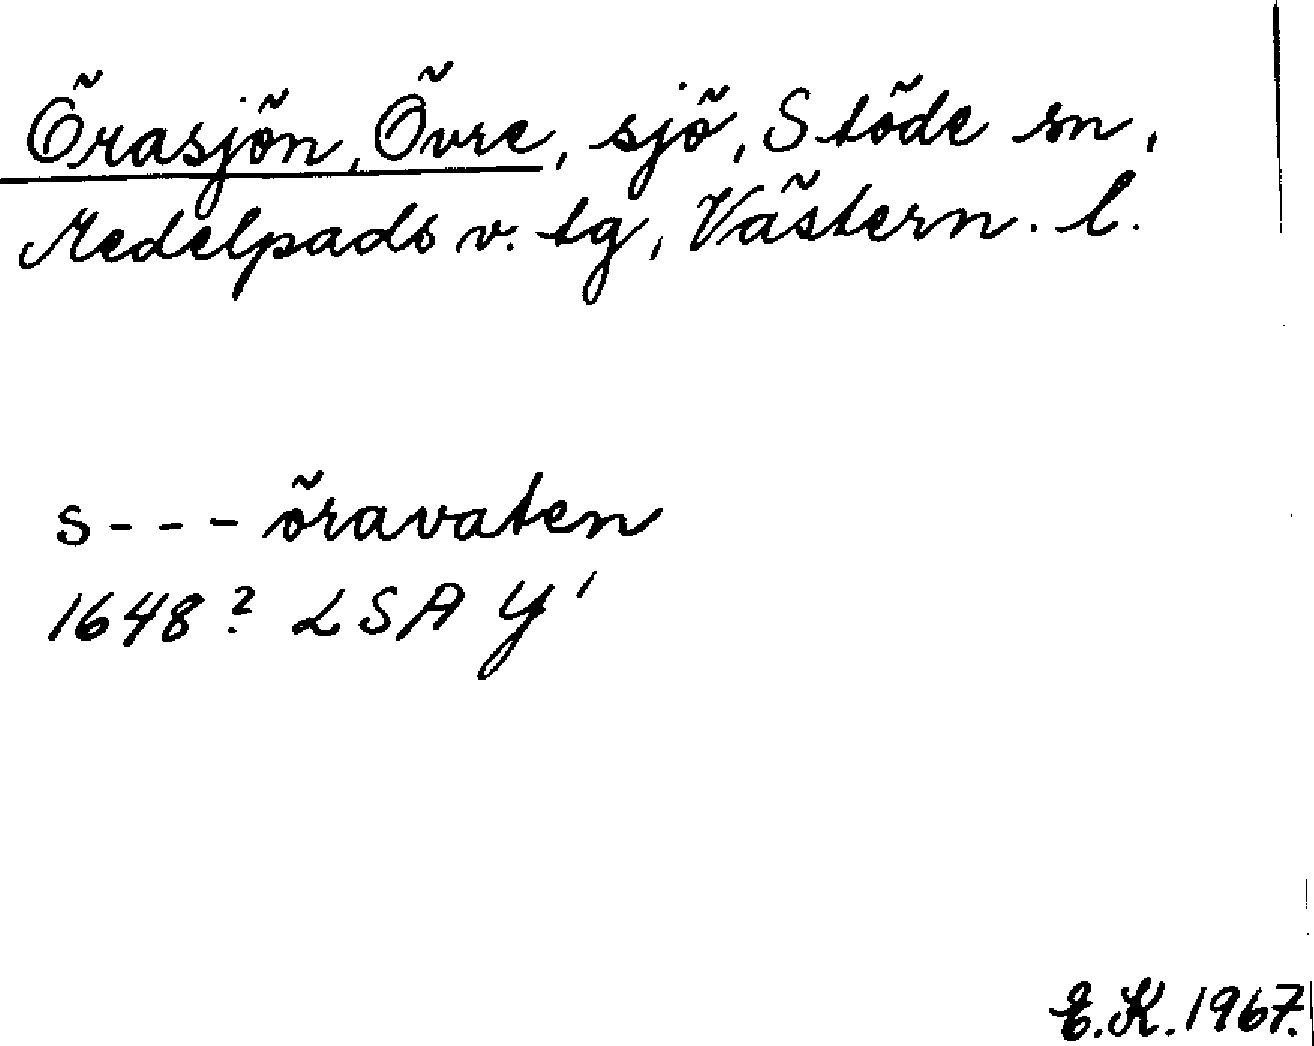 Örasjön, Övre, sjö, Stöde sn,
Medelpads v. tg, Västern. l.
s--- öravaten
1648? LSA Y'
E.K. 1967.